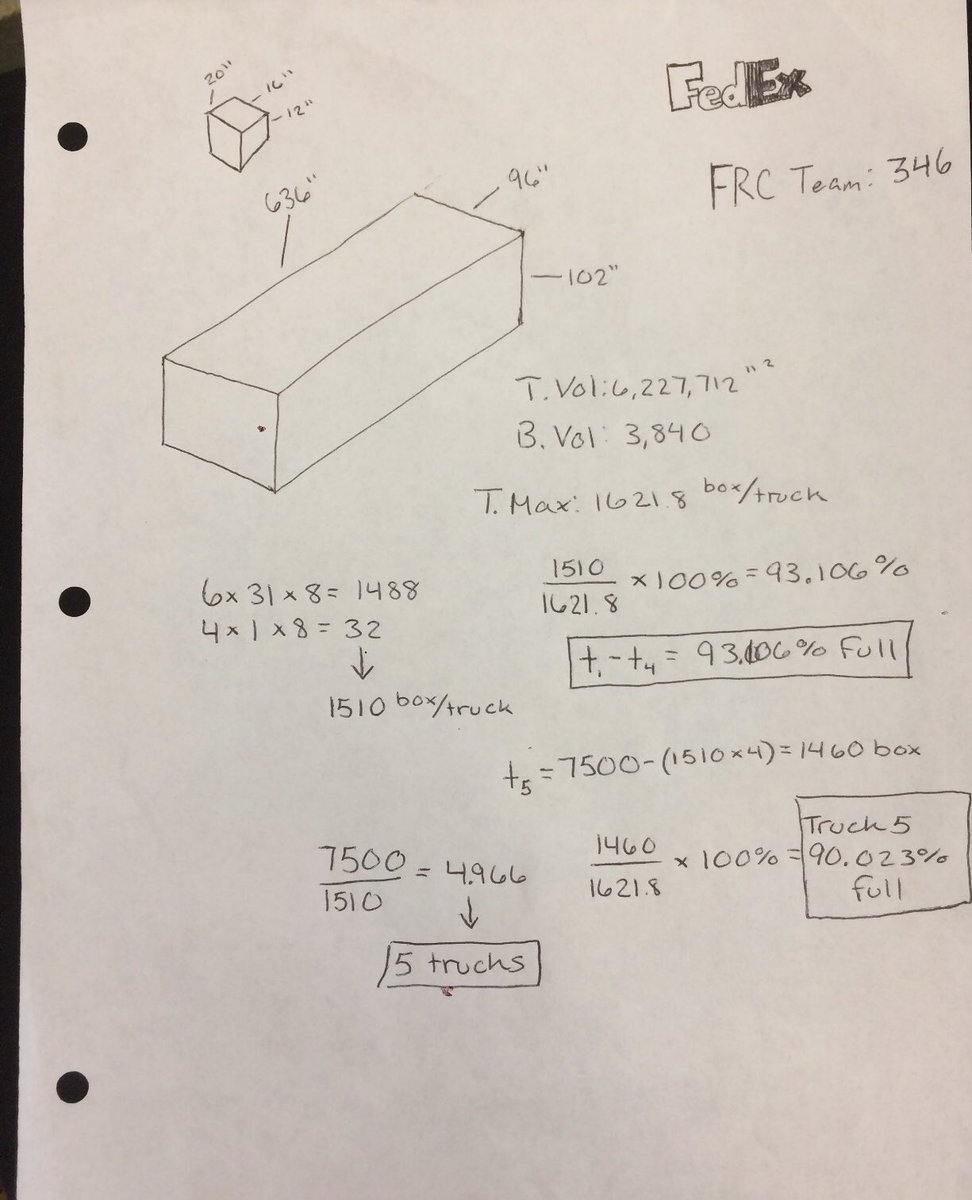 FedEx
FRC Team: 346
20"
16"
12"
636"
96"
102"
T. Vol: 6,227,712"²
B. Vol: 3,840
T. Max: 1621.8 box/truck
6 x 31 x 8 = 1488
4 x 1 x 8 = 32
↓
1510 box/truck
1510/1621.8 x 100% = 93.106%
t₁ - t₄ = 93.106% Full
t₅ = 7500 - (1510 x 4) = 1460 box
7500/1510 = 4.966
↓
5 trucks
1460/1621.8 x 100% =
Truck 5
90.023%
full